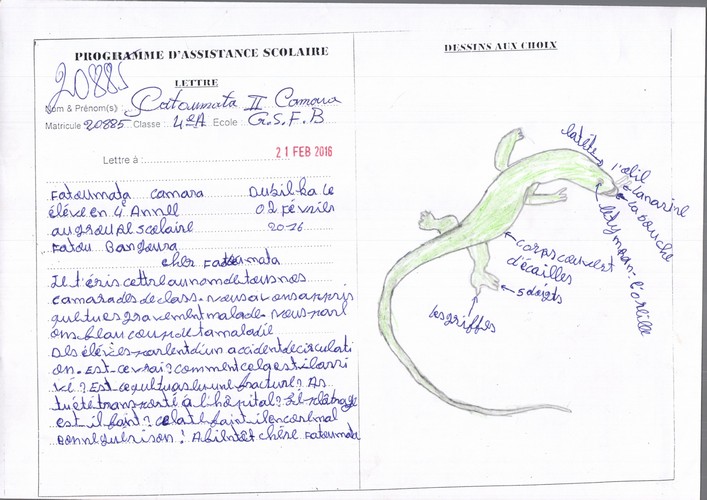 PROGRAMME D'ASSISTANCE SCOLAIRE
20885
LETTRE
Nom & Prénom(s) : Fatoumata II Camara
Matricule 20885 Classe : 4eA Ecole : G.S.F.B
Lettre à :
21 FEB 2016
Fatoumata camara Dubréka le
éléve en 4e Année 02 Février
au groupe scolaire 2016
Fatou Bangoura
cher Fatoumata
Je t'éris cettre au nom de tous nos
camarades de class. nous avons appris
que tu es gravement malade. nous parl
ons beaucoup de ta maladie
Des élèves parlent d'un accident de circulati
on. Est-ce vrai? comment cela est-il arri
vé? Est ce que tu as eu une fracture? As
tu été transporté à l'hôpital? Le plâtrage
est-il faint? cela te faint il encore mal
Bonne guérison! A bientôt chère Fatoumata
DESSINS AUX CHOIX
la tête
l'œil
la narine
la bouche
le tympan: l'oreille
corps couvert
d'écailles
5 doigts
les griffes